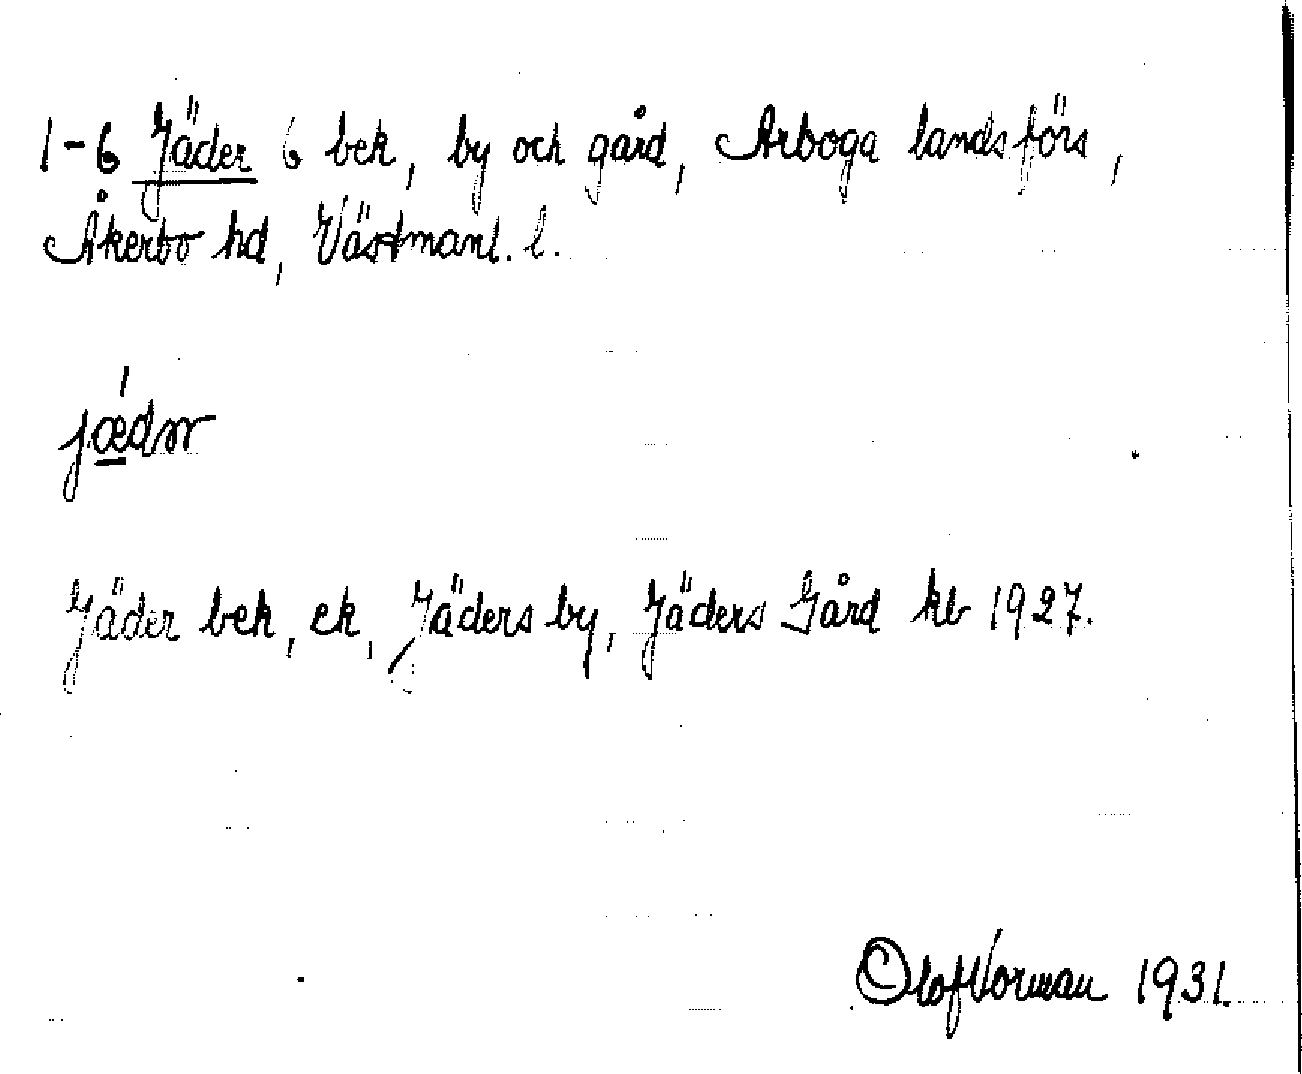 1-6 Jäder 6 bek, by och gård, Arboga landsförs,
Åkerbo hd, Västmanl. l.
Jäder bek, ek, Jäders by, Jäders Gård kb 1927.
Olof Vorman 1931.